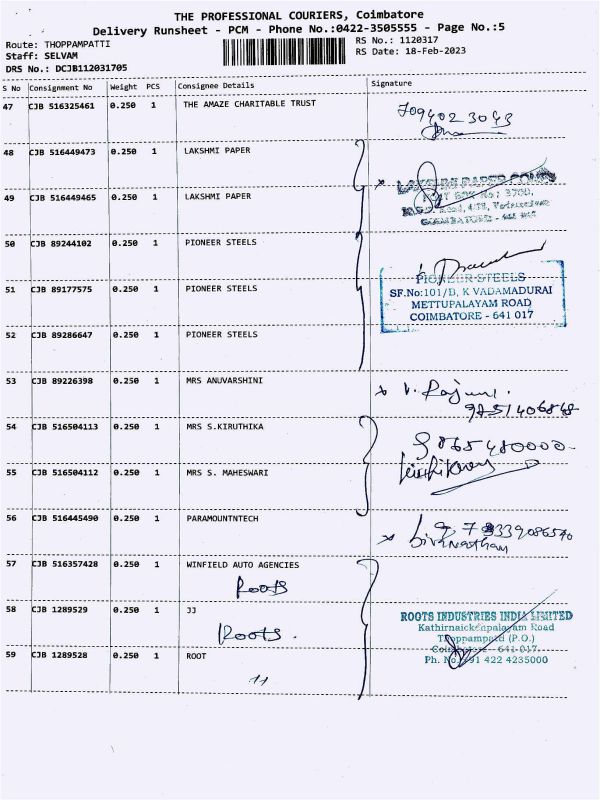 THE PROFESSIONAL COURIERS, Coimbatore
Delivery Runsheet - PCM - Phone No.:0422-3505555 - Page No.:5
Route: THOPPAMPATTI
RS No.: 1120317
Staff: SELVAM
RS Date: 18-Feb-2023
DRS No.: DCJB112031705
S No Consignment No Weight PCS Consignee Details Signature
47 CJB 516325461 0.250 1 THE AMAZE CHARITABLE TRUST
7094023043
48 CJB 516449473 0.250 1 LAKSHMI PAPER
LAKSHMI PAPER
49 CJB 516449465 0.250 1 LAKSHMI PAPER
COIMBATORE
50 CJB 89244102 0.250 1 PIONEER STEELS
PIONEER STEELS
51 CJB 89177575 0.250 1 PIONEER STEELS
SF.No:101/B, K VADAMADURAI
METTUPALAYAM ROAD
COIMBATORE - 641 017
52 CJB 89286647 0.250 1 PIONEER STEELS
53 CJB 89226398 0.250 1 MRS ANUVARSHINI
54 CJB 516504113 0.250 1 MRS S.KIRUTHIKA
9865480000
55 CJB 516504112 0.250 1 MRS S. MAHESWARI
56 CJB 516445490 0.250 1 PARAMOUNTNTECH
57 CJB 516357428 0.250 1 WINFIELD AUTO AGENCIES
Roots
58 CJB 1289529 0.250 1 JJ
Roots.
ROOTS INDUSTRIES INDIA LIMITED
Kathirnaickenpalayam Road
Thoppampatti (P.O.)
Coimbatore - 641 017
59 CJB 1289528 0.250 1 ROOT
Ph. No. +91 422 4235000
11